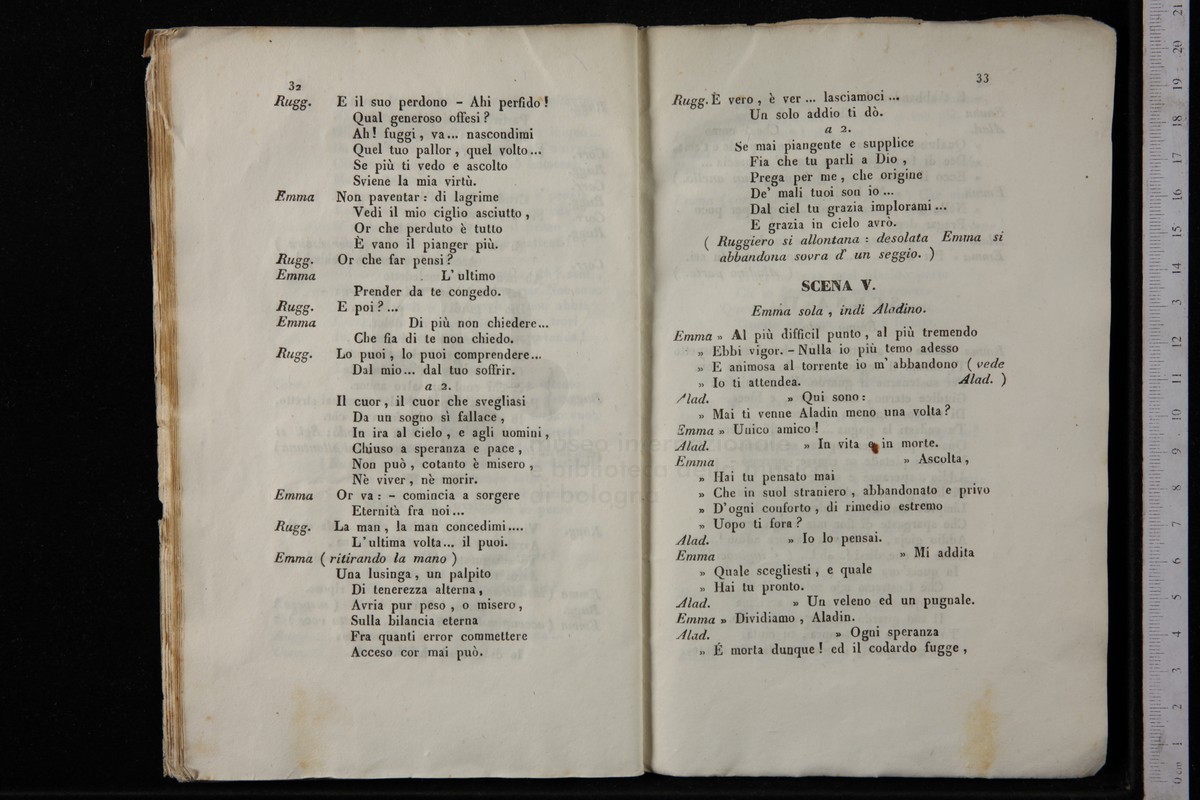 32
Rugg. E il suo perdono – Ahi perfido!
Qual generoso offesi?
Ah! fuggi, va... nascondimi
Quel tuo pallor, quel volto...
Se più ti vedo e ascolto
Sviene la mia virtù.
Emma Non paventar: di lagrime
Vedi il mio ciglio asciutto,
Or che perduto è tutto
È vano il pianger più.
Rugg. Or che far pensi?
Emma L'ultimo
Prender da te congedo.
Rugg. E poi?...
Emma Di più non chiedere...
Che fia di te non chiedo.
Rugg. Lo puoi, lo puoi comprendere...
Dal mio... dal tuo soffrir.
a 2.
Il cuor, il cuor che svegliasi
Da un sogno sì fallace,
In ira al cielo, e agli uomini,
Chiuso a speranza e pace,
Non può, cotanto è misero,
Nè viver, nè morir.
Emma Or va: – comincia a sorgere
Eternità fra noi...
Rugg. La man, la man concedimi....
L'ultima volta... il puoi.
Emma (ritirando la mano)
Una lusinga, un palpito
Di tenerezza alterna,
Avria pur peso, o misero,
Sulla bilancia eterna
Fra quanti error commettere
Acceso cor mai può.
33
Rugg. È vero, è ver... lasciamoci...
Un solo addio ti dò.
a 2.
Se mai piangente e supplice
Fia che tu parli a Dio,
Prega per me, che origine
De' mali tuoi son io...
Dal ciel tu grazia implorami...
E grazia in cielo avrò.
(Ruggiero si allontana: desolata Emma si
abbandona sovra d'un seggio.)
SCENA V.
Emma sola, indi Aladino.
Emma » Al più difficil punto, al più tremendo
» Ebbi vigor. – Nulla io più temo adesso
» E animosa al torrente io m'abbandono (vede
» Io ti attendea. Alad.)
Alad. » Qui sono:
» Mai ti venne Aladin meno una volta?
Emma » Unico amico!
Alad. » In vita in morte.
Emma » Ascolta,
» Hai tu pensato mai
» Che in suol straniero, abbandonato e privo
» D'ogni conforto, di rimedio estremo
» Uopo ti fora?
Alad. » Io lo pensai.
Emma » Mi addita
» Quale scegliesti, e quale
» Hai tu pronto.
Alad. » Un veleno ed un pugnale.
Emma » Dividiamo, Aladin.
Alad. » Ogni speranza
» È morta dunque! ed il codardo fugge,
museo internazionale
e biblioteca della musica
di bologna
0 cm 1 2 3 4 5 6 7 8 9 10 11 12 13 14 15 16 17 18 19 20 21